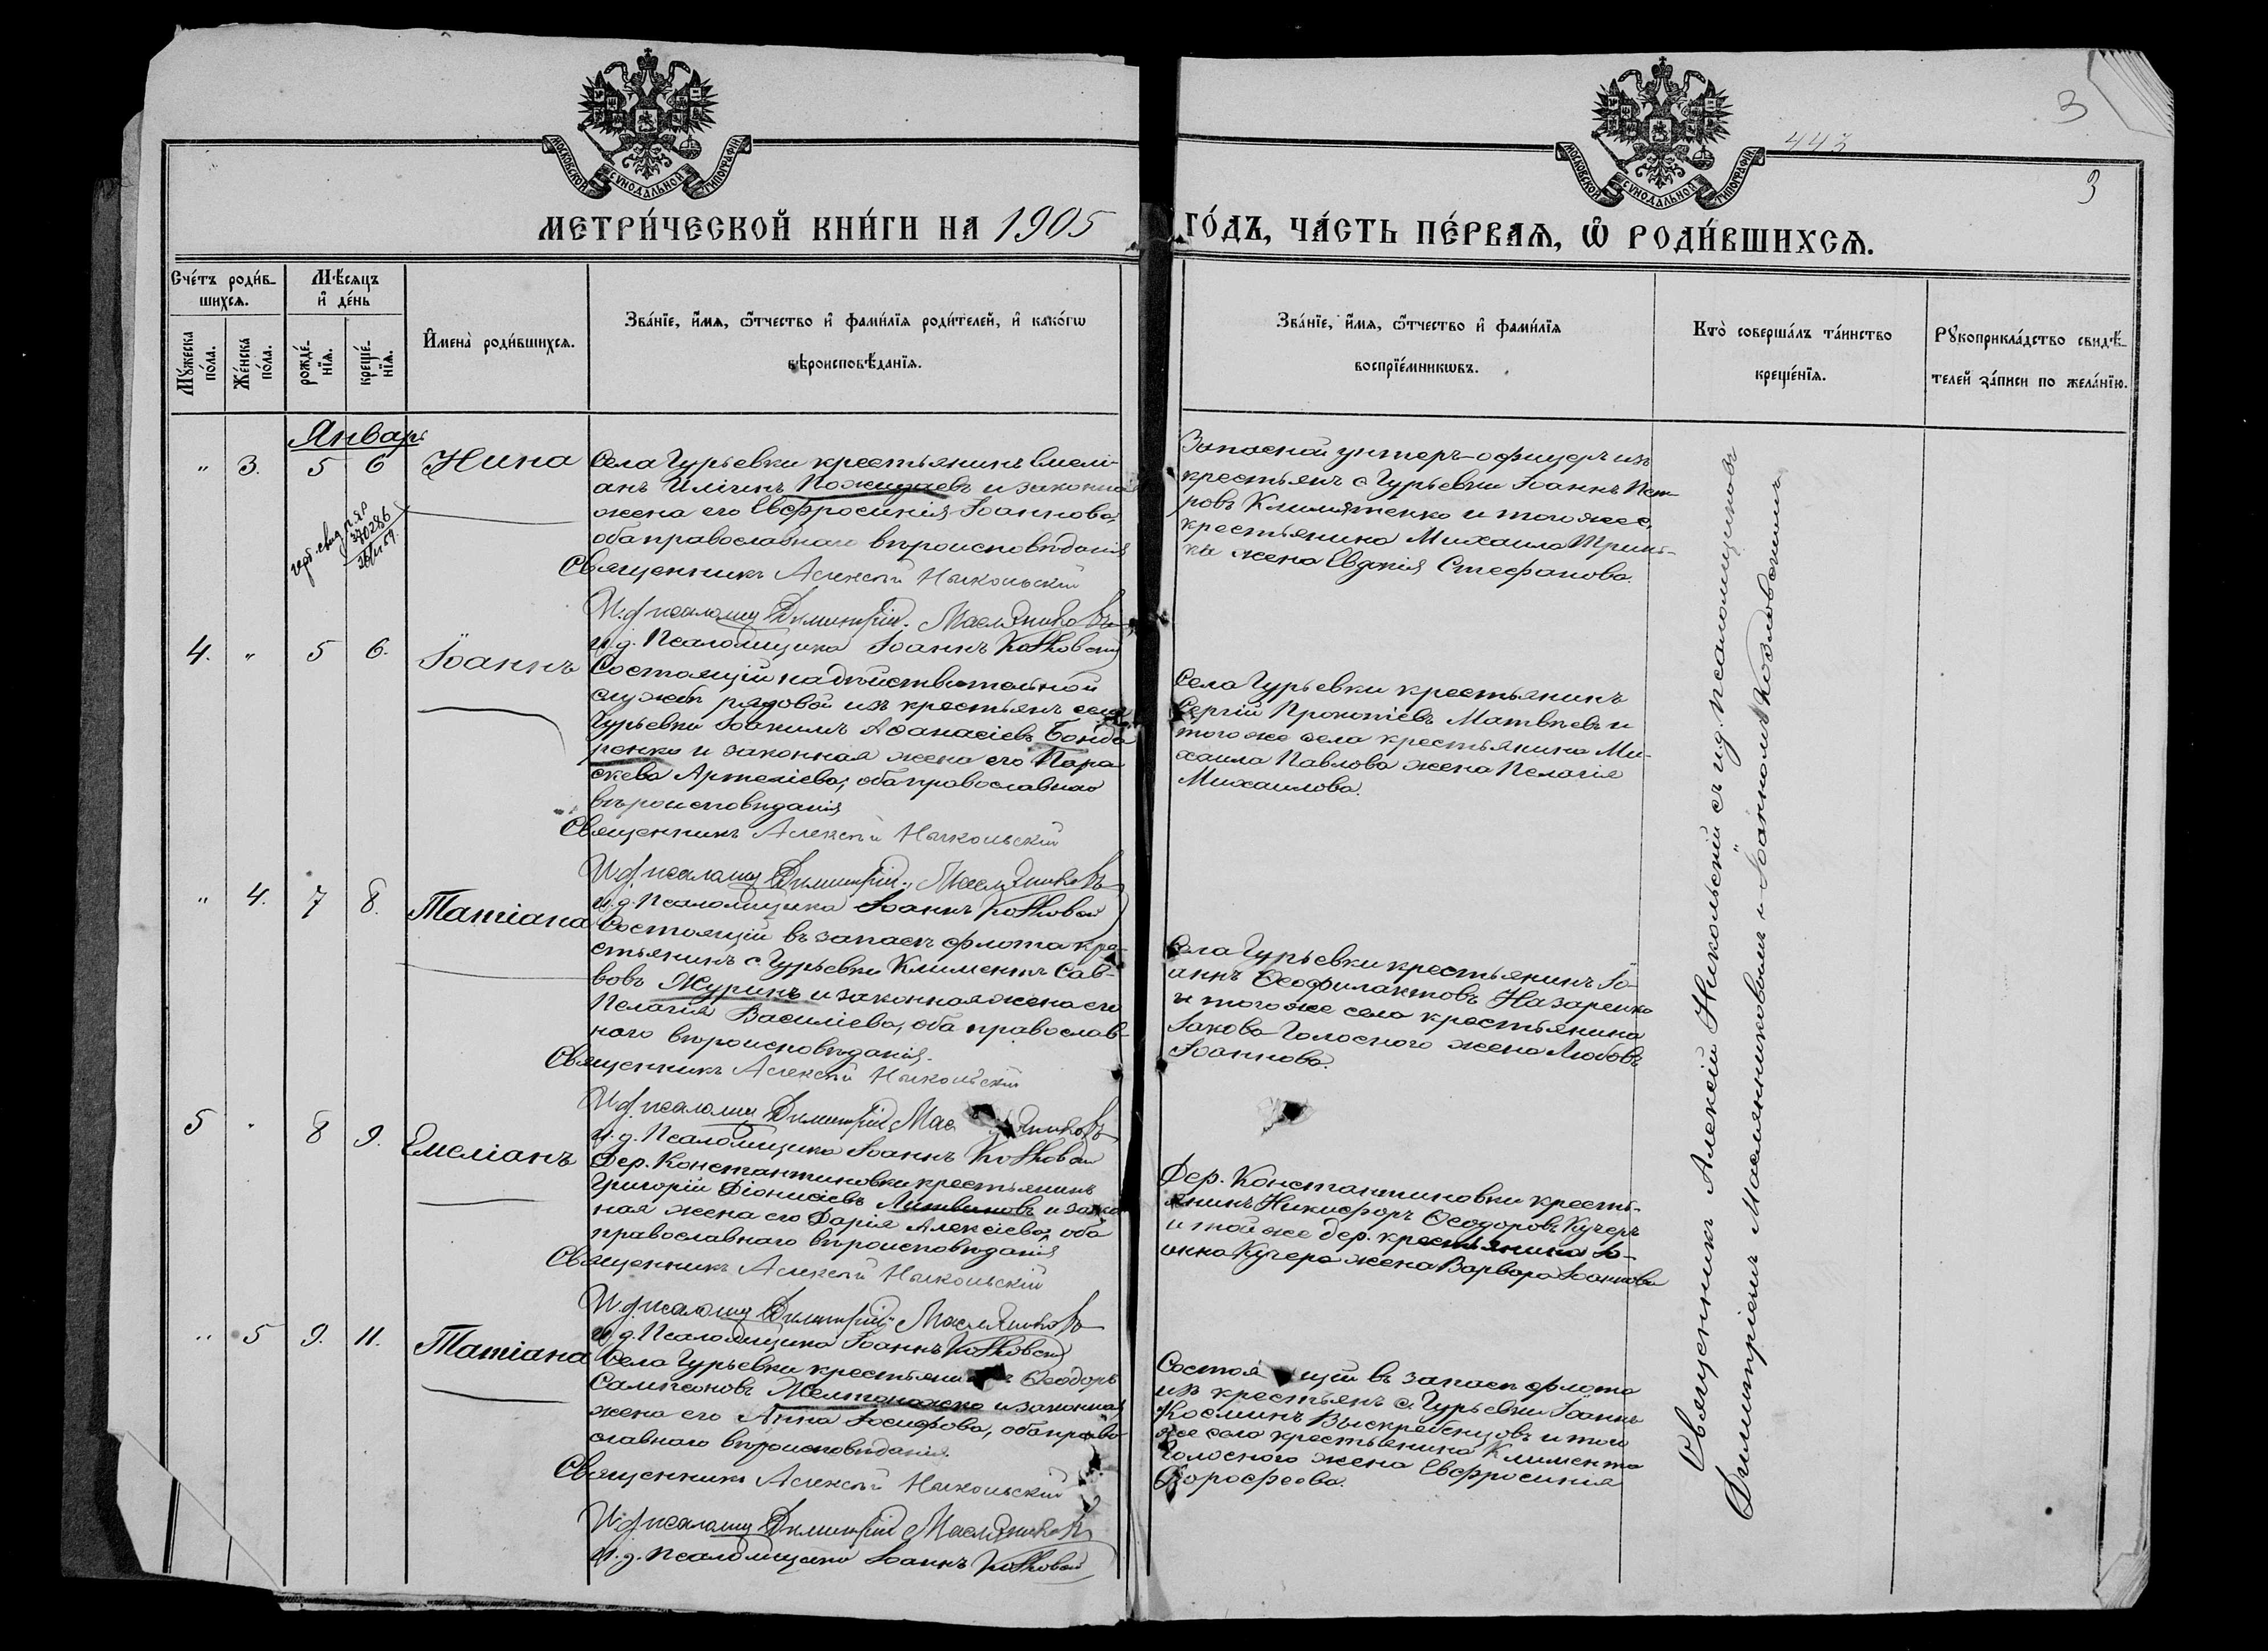 МОСКОВСКОЙ СѴНОДАЛЬНОЙ ТИПОГРАФІИ.
МОСКОВСКОЙ СѴНОДАЛЬНОЙ ТИПОГРАФІИ.
443
3
3
МЕТРИ́ЧЕСКОЙ КНИ́ГИ НА 1905
ГО́ДЪ, ЧА́СТЬ ПЕ́РВАѦ, Ѽ РОДИ́ВШИХСѦ.
Сче́тъ роди́в-
шихсѧ.
Мꙋ́жеска по́ла.
Же́нска по́ла.
Мѣ́сѧцъ
и҆ де́нь
рожде́-
нїѧ.
креще́-
нїѧ.
И҆мена̀ роди́вшихсѧ.
Зва́нїе, и҆́мѧ, ѻ҆́тчество и҆ фами́лїѧ роди́телей, и҆ како́гѡ
вѣроисповѣ́данїѧ.
Зва́нїе, и҆́мѧ, ѻ҆́тчество и҆ фами́лїѧ
воспрїе́мникѡвъ.
Кто̀ соверша́лъ та́инство
креще́нїѧ.
Рꙋкоприкла́дство свидѣ́-
телей за́писи по жела́нїю.
Январь
" 3. 5 6 Нина
Села Гурьевки крестьянинъ Емелі-
анъ Илiинъ Пожидаевъ и законная
жена его Евфросинія Іоаннова,
оба православнаго вѣроисповѣданія
Священникъ Алексій Никольскій
И.д. псаломщ. Димитрій Маслянниковъ
и.д. Псаломщика Іоаннъ
Запасной унтеръ-офицеръ изъ
крестьянъ с. Гурьевки Іоаннъ Пет-
ровъ Климятенко и того же с.
крестьянина Михаила
жена Евдокія Стефанова.
4. " 5 6. Іоаннъ
Состоящій на дѣйствительной
службѣ рядовой изъ крестьянъ села
Гурьевки Іоакимъ Аѳанасіевъ Бонда-
ренко и законная жена его Пара-
скева Артеміева, оба православнаго
вѣроисповѣданія
Священникъ Алексій Никольскій
И.д. псаломщ. Димитрій Маслянниковъ
и.д. Псаломщика Іоаннъ
Села Гурьевки крестьянинъ
Сергій Прокопіевъ Матвѣевъ и
того же села крестьянина Ми-
хаила Павлова жена Пелагія
Михаилова.
" 4. 7 8. Татіана
Состоящій въ запасѣ флота кре-
стьянинъ с. Гурьевки Климентъ Сав-
вовъ Журинъ и законная жена его
Пелагія Василіева, оба православ-
наго вѣроисповѣданія.
Священникъ Алексій Никольскій
И.д. псаломщ. Димитрій Маслянниковъ
и.д. Псаломщика Іоаннъ
Села Гурьевки крестьянинъ Іо-
аннъ Ѳеофилактовъ Назаренко
и того же села крестьянина
Іакова Голоснаго жена Любовь
Іоаннова.
5 " 8 9. Емеліанъ
Дер. Константиновки крестьянинъ
Григорій Діонисіевъ Литвиновъ и закон-
ная жена его Дарія Алексіева, оба
православнаго вѣроисповѣданія
Священникъ Алексій Никольскій
И.д. псаломщ. Димитрій Маслянниковъ
и.д. Псаломщика Іоаннъ
Дер. Константиновки кресть-
янинъ Никифоръ Ѳеодоровъ Кучеръ
и той же дер. крестьянина Іо-
анна Кучера жена Варвара Іоаннова
" 5 9. 11. Татіана
Села Гурьевки крестьянинъ Ѳеодоръ
Сампсоновъ Желтоножко и законная
жена его Анна Іосифова, оба право-
славнаго вѣроисповѣданія.
Священникъ Алексій Никольскій
И.д. псаломщ. Димитрій Маслянниковъ
и.д. псаломщика Іоаннъ
Состоящій въ запасѣ флота
изъ крестьянъ с. Гурьевки Іоаннъ
Косминъ Выскребенцовъ и того
же села крестьянина Климента
Голоснаго жена Евфросинія
Дороѳеева.
Священникъ Алексій Никольскій съ и.д. псаломщиковъ
Димитріемъ Маслянниковымъ и Іоанномъ Козловскимъ